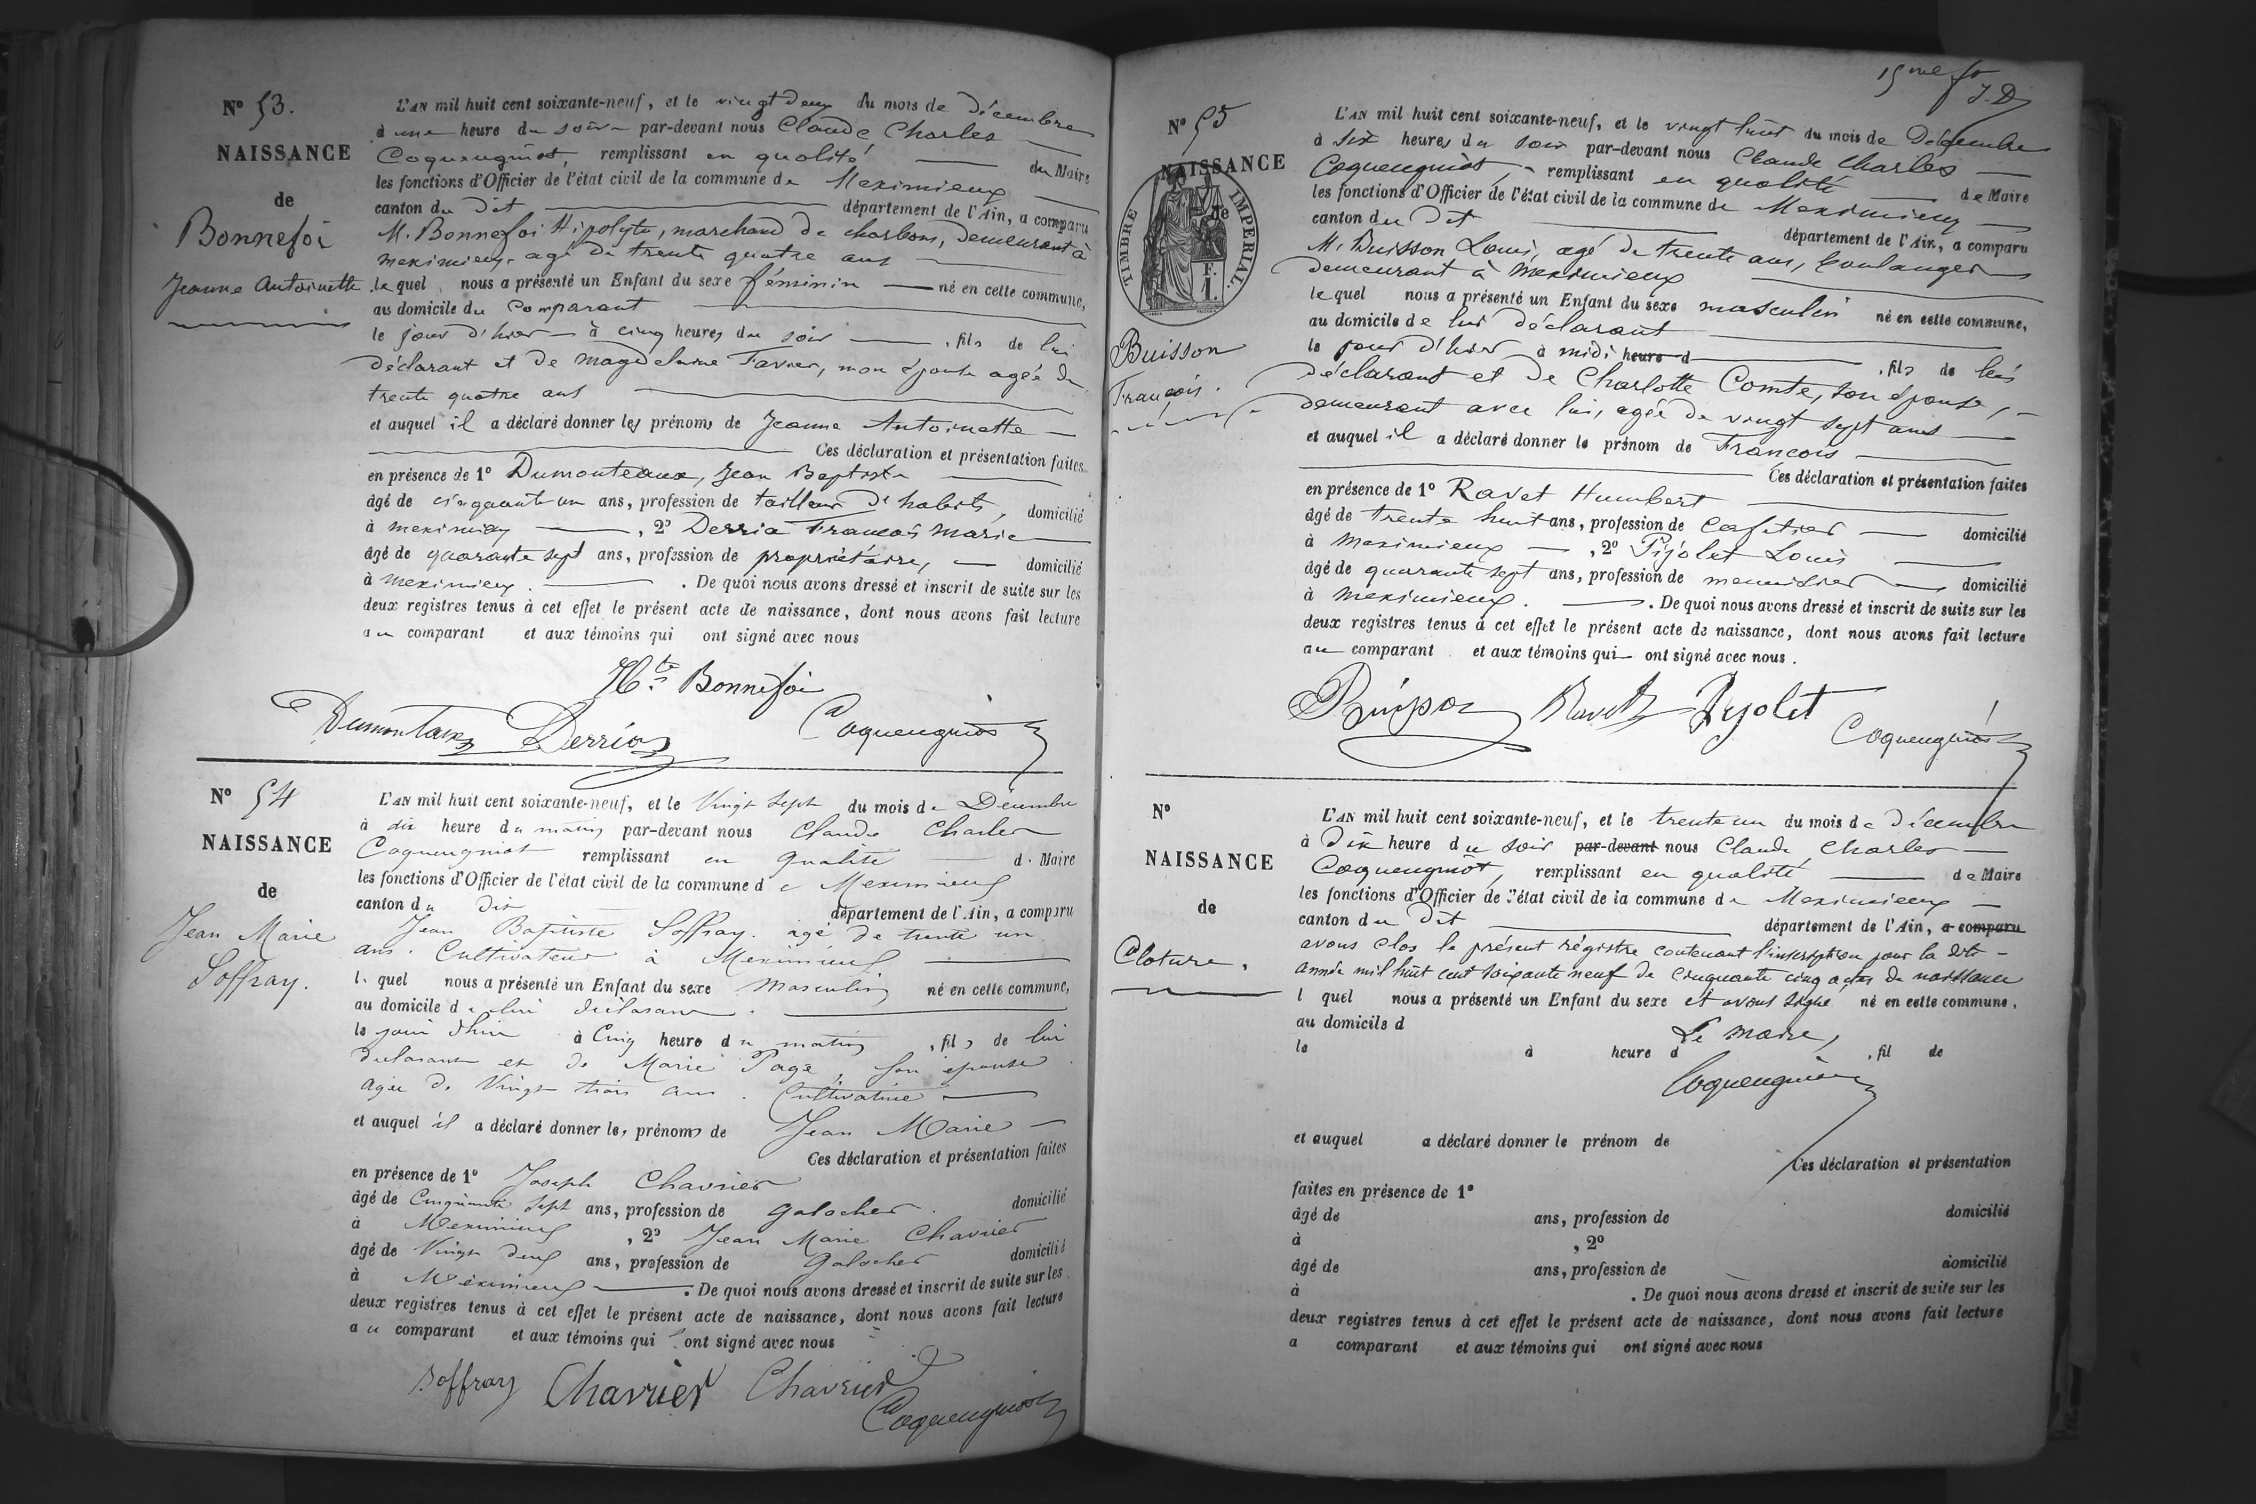 Nº 53.
NAISSANCE
de
Bonnefoi
Jeanne Antoinette
L'AN mil huit cent soixante-neuf, et le vingt deux du mois de décembre
à une heure du soir par-devant nous Claude Charles
Coquengniot, remplissant en qualité du Maire
les fonctions d'Officier de l'état civil de la commune de Meximieux
canton du dit département de l'Ain, a comparu
M. Bonnefoi Hipolyte, marchand de charbons, demeurant à
meximieux, agé de trente quatre ans
lequel nous a présenté un Enfant du sexe féminin né en cette commune,
au domicile du comparant
le jour d'hier à cinq heures du soir, fils de lui
déclarant et de magdeleine Favier, mon épouse agée de
trente quatre ans
et auquel il a déclaré donner les prénoms de Jeanne Antoinette
Ces déclaration et présentation faites
en présence de 1º Dumonteaux, Jean Baptiste
âgé de cinquante un ans, profession de tailleur d'habits, domicilié
à meximieux, 2º Derria François Marie
âgé de quarante sept ans, profession de propriétaire, domicilié
à meximieux. De quoi nous avons dressé et inscrit de suite sur les
deux registres tenus à cet effet le présent acte de naissance, dont nous avons fait lecture
au comparant et aux témoins qui ont signé avec nous
Hte Bonnefoi
Dumontaux Derria Coquengniot
Nº 54
NAISSANCE
de
Jean Marie
Soffray.
L'AN mil huit cent soixante-neuf, et le Vingt sept du mois de Décembre
à dix heure du matin par-devant nous Claude Charles
Coquengniot remplissant en qualité d. Maire
les fonctions d'Officier de l'état civil de la commune de Meximieux
canton du dit département de l'Ain, a comparu
Jean Baptiste Soffray. agé de trente un
ans. Cultivateur à Meximieux
l. quel nous a présenté un Enfant du sexe Masculin né en cette commune,
au domicile de lui déclarant.
le jour d'hier à Cinq heure du matin, fils de lui
déclarant et de Marie Page, son épouse
agée de Vingt trois ans. Cultivatrice
et auquel il a déclaré donner les prénoms de Jean Marie
Ces déclaration et présentation faites
en présence de 1º Joseph Chavrier
âgé de Cinquante sept ans, profession de Galocher. domicilié
à Meximieux, 2º Jean Marie Chavrier
âgé de Vingt deux ans, profession de Galocher domicilié
à Meximieux. De quoi nous avons dressé et inscrit de suite sur les
deux registres tenus à cet effet le présent acte de naissance, dont nous avons fait lecture
au comparant et aux témoins qui ont signé avec nous
Soffray Chavrier Chavrier
Coquengniot
15me fo
J.D
Nº 55
NAISSANCE
de
TIMBRE IMPERIAL.
Buisson
François.
L'AN mil huit cent soixante-neuf, et le vingt huit du mois de Décembre
à six heures du soir par-devant nous Claude Charles
Coquengniot, remplissant en qualité de Maire
les fonctions d'Officier de l'état civil de la commune de Meximieux
canton du dit département de l'Ain, a comparu
Mr Buisson Louis, agé de trente ans, boulanger
demeurant à Meximieux
lequel nous a présenté un Enfant du sexe masculin né en cette commune,
au domicile de lui déclarant
le jour d'hier à midi heure d, fils de lui
déclarant et de Charlotte Comte, son épouse,
demeurant avec lui, agée de vingt sept ans
et auquel il a déclaré donner le prénom de François
Ces déclaration et présentation faites
en présence de 1º Ravet Humbert
âgé de trente huit ans, profession de cafetier domicilié
à Meximieux, 2º Pijolet Louis
âgé de quarante sept ans, profession de menuisier domicilié
à meximieux. De quoi nous avons dressé et inscrit de suite sur les
deux registres tenus à cet effet le présent acte de naissance, dont nous avons fait lecture
au comparant et aux témoins qui ont signé avec nous.
Buisson Ravet Pijolet
Coquengniot
Nº
NAISSANCE
de
Cloture.
L'AN mil huit cent soixante-neuf, et le trente un du mois de décembre
à Dix heure du soir par-devant nous Claude Charles
Coquengniot, remplissant en qualité de Maire
les fonctions d'Officier de l'état civil de la commune de Meximieux
canton du dit département de l'Ain, a comparu
avons clos le présent régistre contenant l'inscription pour la dte
année mil huit cent soixante neuf de cinquante cinq actes de naissance
l quel nous a présenté un Enfant du sexe et avons signé né en cette commune,
au domicile d
Le maire,
le à heure d, fil de
Coquengniot
et auquel a déclaré donner le prénom de
Ces déclaration et présentation
faites en présence de 1º
âgé de ans, profession de domicilié
à, 2º
âgé de ans, profession de domicilié
à. De quoi nous avons dressé et inscrit de suite sur les
deux registres tenus à cet effet le présent acte de naissance, dont nous avons fait lecture
a comparant et aux témoins qui ont signé avec nous